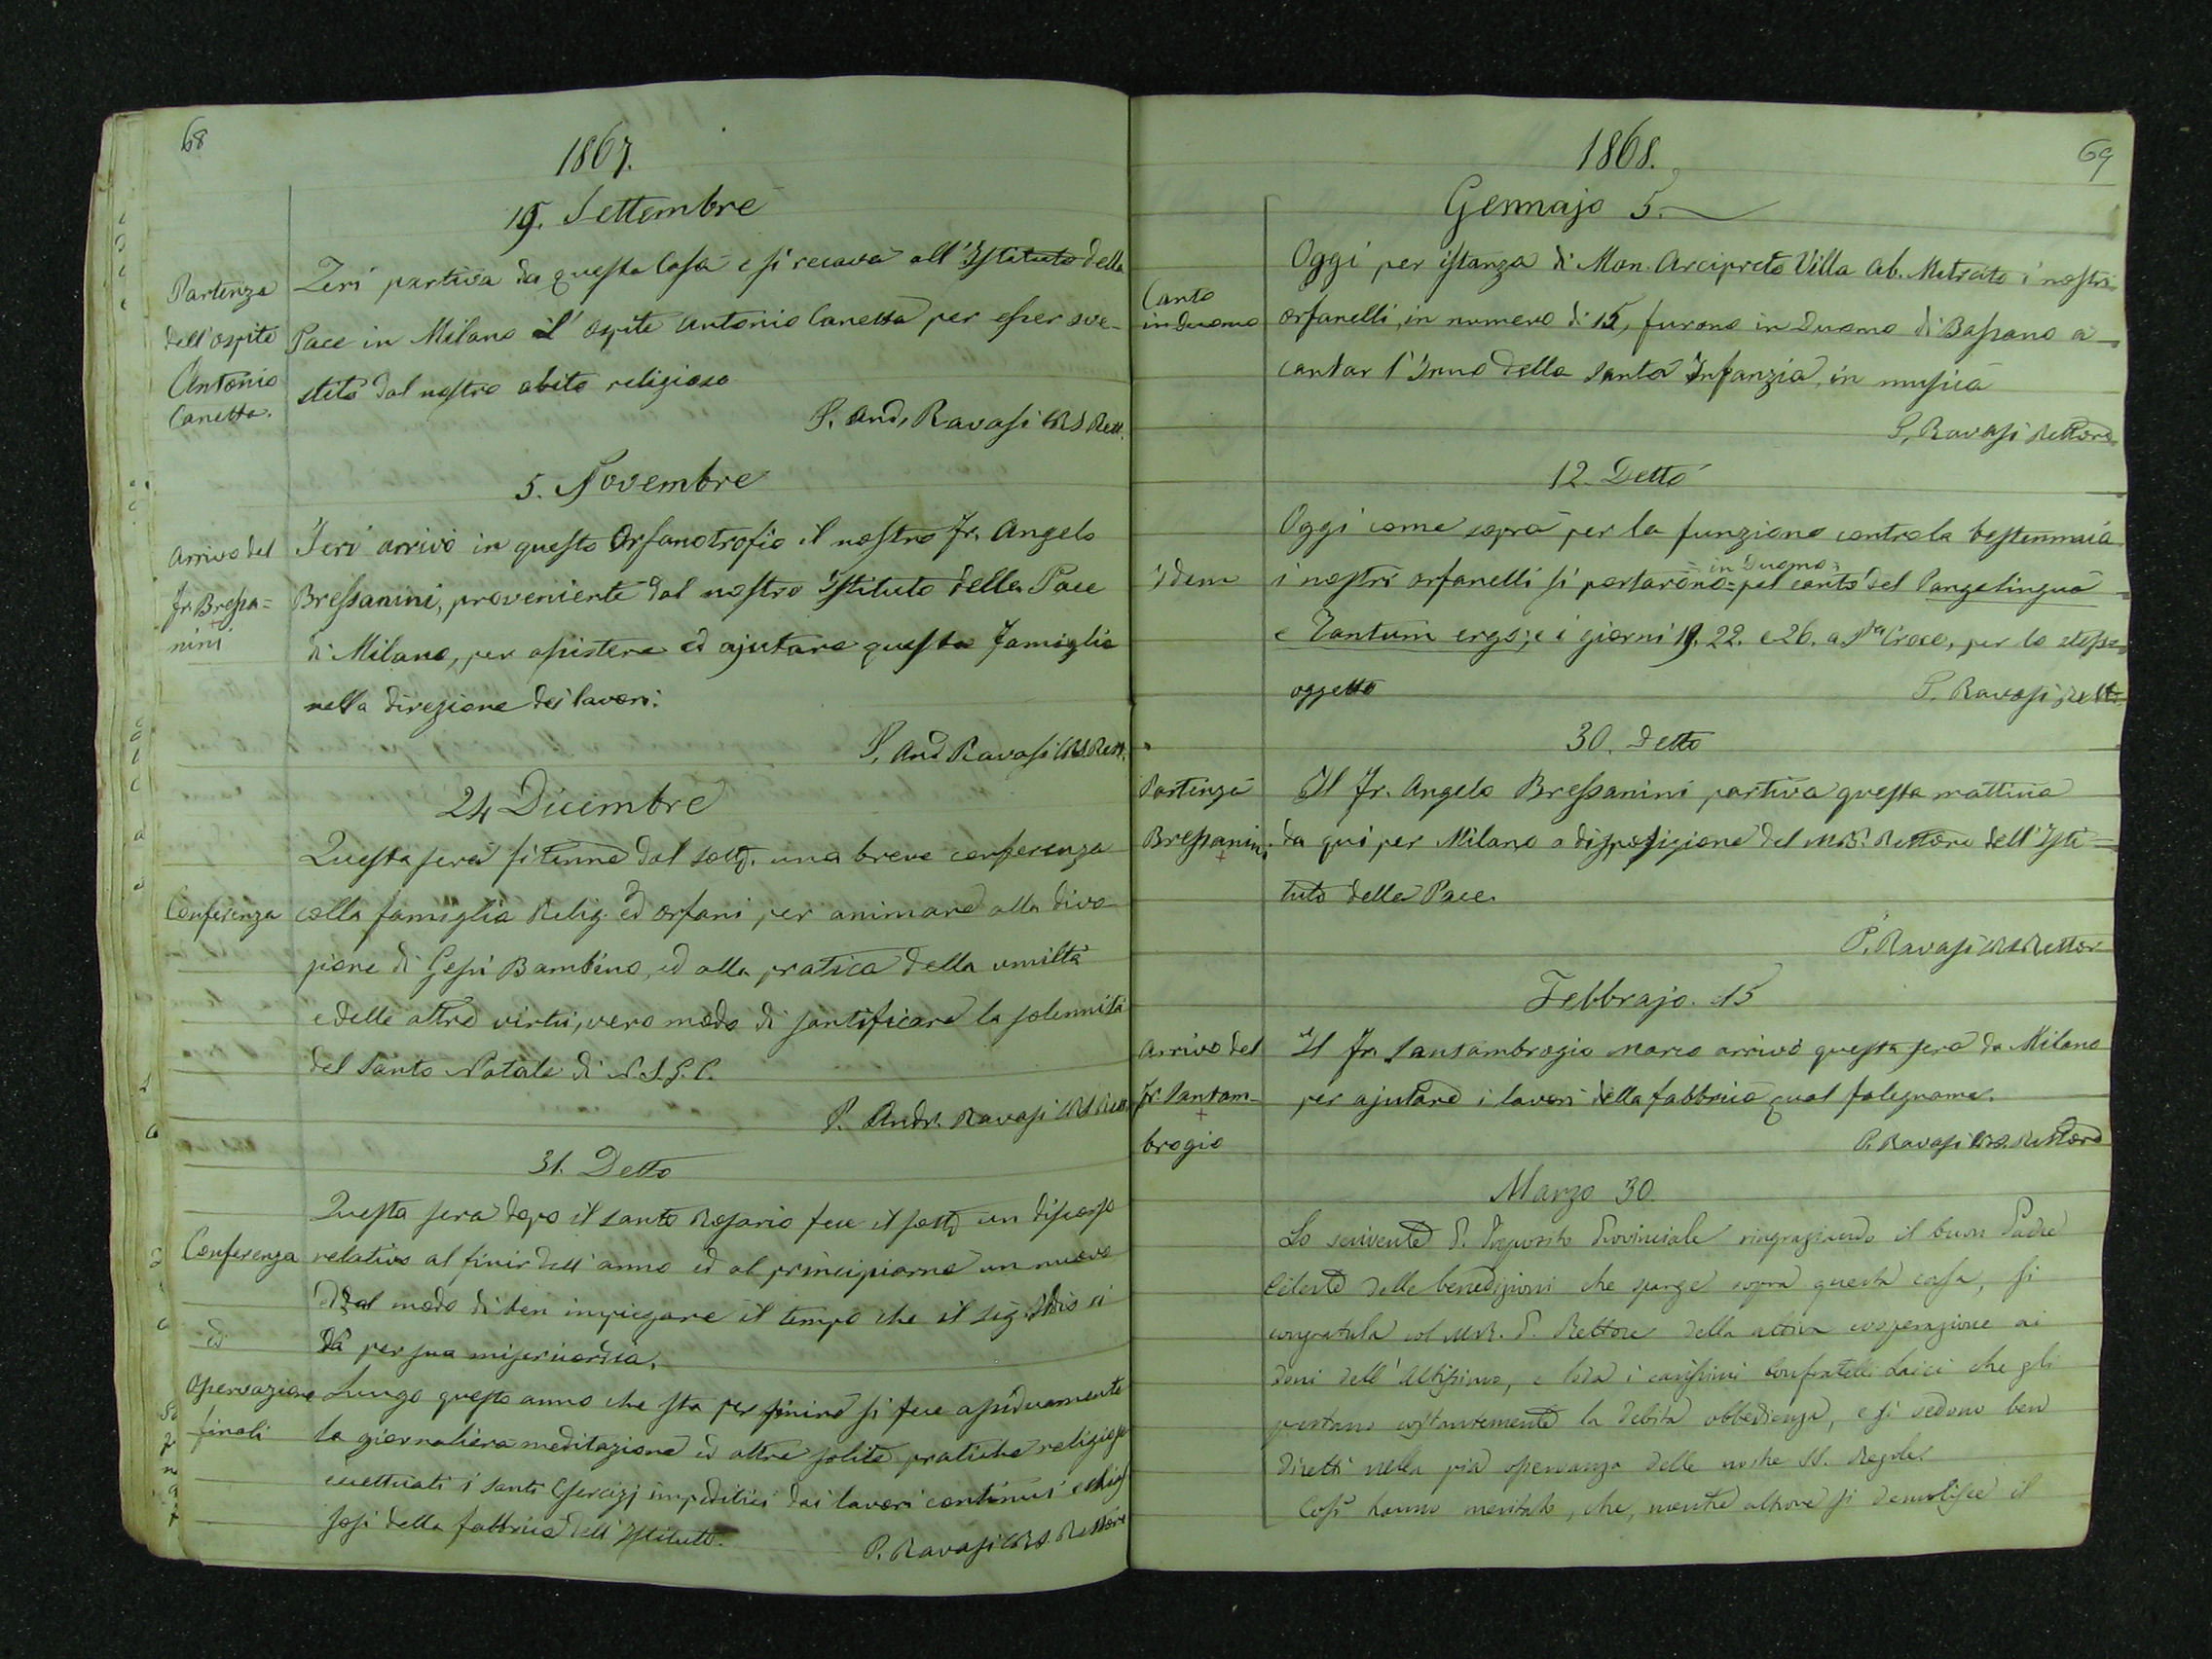 68
1867.
19. Settembre
Partenza
dell'ospite
Antonio
Canetta.
Jeri partiva da questa Casa e si recava all'Istituto della
Pace in Milano l'ospite Antonio Canetta per esser sve-
stito dal nostro abito religioso
P. And. Ravasi CRS Rett.
5. Novembre
Arrivo del
Fr. Bressa=
nini
Jeri arrivò in questo Orfanotrofio il nostro Fr. Angelo
Bressanini, proveniente dal nostro Istituto della Pace
di Milano, per assistere ed ajutare questa famiglia
nella direzione dei lavori.
P. And Ravasi CRS. Rett.
24 Dicembre
Conferenza
Questa sera si tenne dal sott. una breve conferenza
colla famiglia Relig. ed orfani per animare alla divo
zione di Gesù Bambino, ed alla pratica della umiltà
e delle altre virtù, vero modo di santificare la solennità
del Santo Natale di N.S.G.C.
P. Andr. Ravasi CRS Rett.
31. Detto
Conferenza
ed
osservazione
finali
Questa sera dopo il santo Rosario fece il sott un discorso
relativo al finir dell'anno ed al principiarne un nuovo
ed al modo di ben impiegare il tempo che il Sig. Iddio ci
dà per sua misericordia.
Lungo questo anno che sta per finire si fece assiduamente
la giornaliera meditazione ed altre solite pratiche religiose
eccettuati i santi Esercizj impediti dai lavori continui e
sosi della fabbrica dell'Istituto.
P. Ravasi CRS. Rettore
69
1868.
Gennajo 5.
Canto
in Duomo
Oggi per istanza di Mon. Arciprete Villa Ab. Mitrato i nostri
orfanelli, in numero di 15, furono in Duomo di Bassano a
cantar l'Inno della Santa Infanzia, in musica
P. Ravasi Rettore
12. Detto
Idem
Oggi come sopra per la funzione contro la bestemmia
in Duomo
i nostri orfanelli si portarono = pel canto del Pangelingua
e Tantum ergo; e i giorni 19. 22. e 26. a Sta Croce, per lo stesso
oggetto
P. Ravasi Rett.
30. Detto
Partenza
Bressanini
Il Fr. Angelo Bressanini partiva questa mattina
da qui per Milano a disposizione del M.R. Rettore dell'Isti=
tuto della Pace.
P. Ravasi CRS Rettor
Febbrajo. 15
Arrivo del
Fr. Santam-
brogio
Il Fr. Santambrogio Marco arrivò questa sera da Milano
per ajutare i lavori della fabbrica qual falegname.
P. Ravasi CRS. Rettore
Marzo 30
Lo scrivente P. Preposito Provinciale ringraziando il buon Padre
Celeste delle benedizioni che sparge sopra questa casa, si
congratula col M.R. P. Rettore della attiva cooperazione ai
doni dell'Altissimo, e loda i carissimi Confratelli Laici che gli
prestano costantemente la debita obbedienza, e si vedono ben
diretti nella pia osservanza delle nostre SS. Regole.
Così hanno meritato, che, mentre altrove si demolisce il